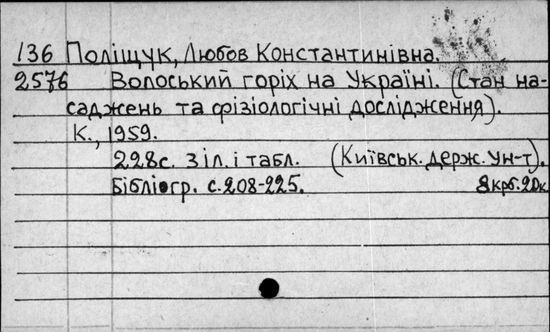 136 Поліщук, Любов Константинівна.
2576 Волоський горіх на Україні. (Стан на-
саджень та фізіологічні дослідження).
К., 1959.
228с. з іл. і табл. (Київськ. держ. ун-т).
Бібліогр. с. 208-225. 8крб. 20к.